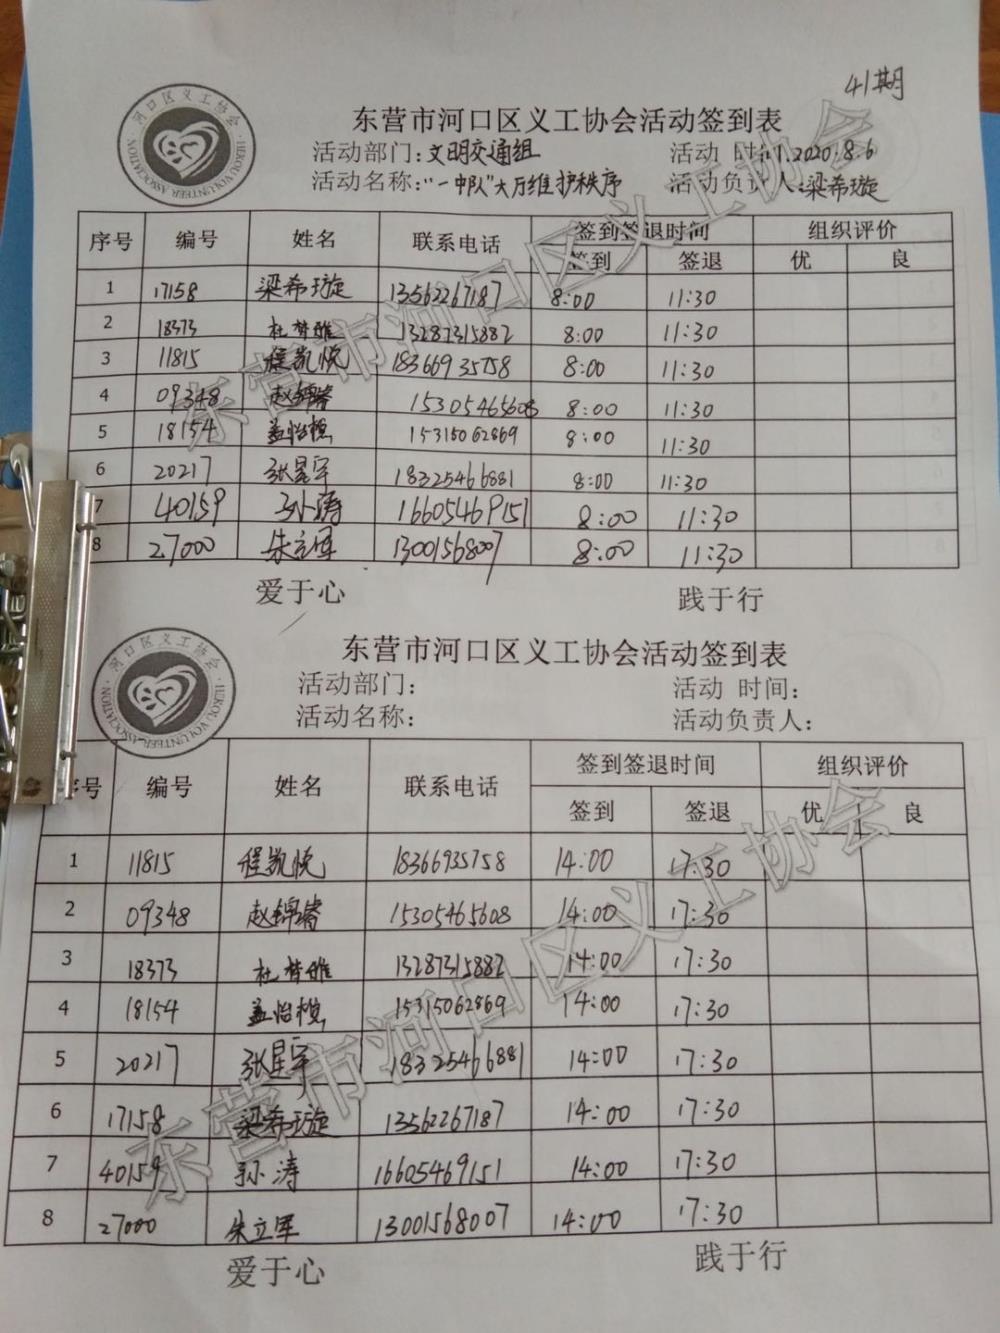 41期
河口区义工协会
HEKOU VOLUNTEER ASSOCIATION
东营市河口区义工协会活动签到表
活动部门：文明交通组 活动 时间：2020.8.6
活动名称："一中队"大厅维护秩序 活动负责人：梁希璇
序号 编号 姓名 联系电话 签到签退时间 组织评价
签到 签退 优 良
1 17158 梁希璇 13562267187 8:00 11:30
2 18373 杜梦雅 13287315882 8:00 11:30
3 11815 程凯悦 18366935758 8:00 11:30
4 09348 赵锦睿 15305465608 8:00 11:30
5 18154 盖怡 15315062869 8:00 11:30
6 20217 张星宇 18325466881 8:00 11:30
7 40159 孙涛 16605469151 8:00 11:30
8 27000 朱立军 13001568007 8:00 11:30
爱于心 践于行
东营市河口区义工协会
河口区义工协会
HEKOU VOLUNTEER ASSOCIATION
东营市河口区义工协会活动签到表
活动部门： 活动 时间：
活动名称： 活动负责人：
序号 编号 姓名 联系电话 签到签退时间 组织评价
签到 签退 优 良
1 11815 程凯悦 18366935758 14:00 17:30
2 09348 赵锦睿 15305465608 14:00 17:30
3 18373 杜梦雅 13287315882 14:00 17:30
4 18154 盖怡 15315062869 14:00 17:30
5 20217 张星宇 18325466881 14:00 17:30
6 17158 梁希璇 13562267187 14:00 17:30
7 40159 孙涛 16605469151 14:00 17:30
8 27000 朱立军 13001568007 14:00 17:30
爱于心 践于行
东营市河口区义工协会